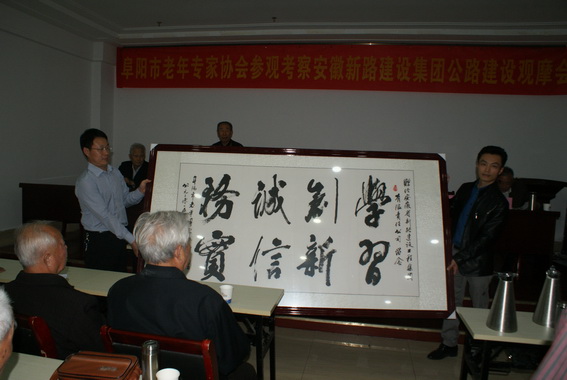 阜阳市老年专家协会参观考察安徽新路建设集团公路建设观摩会
學習
創新
誠信
務實